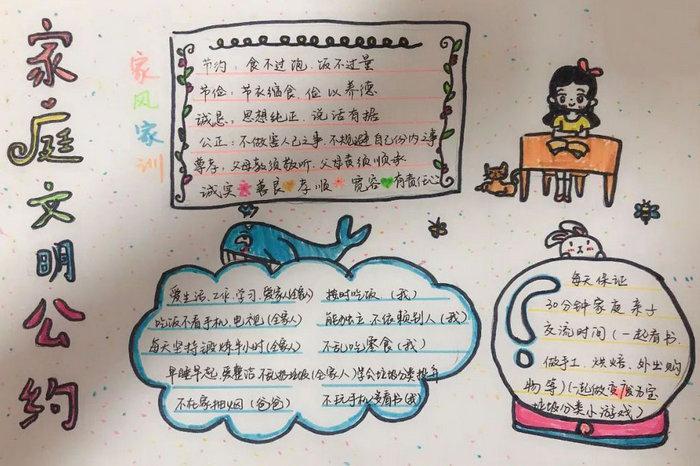 家庭文明公约
家风家训
节约：食不过饱、饭不过量
节俭：节衣缩食、俭以养德
诚恳：思想纯正、说话有据
公正：不做害人己之事、不规避自己份内之事
尊孝：父母教须敬听、父母责须顺承
诚实 善良 孝顺 宽容 有责任心
爱生活、工作、学习、爱家人(全家人)
吃饭不看手机、电视(全家人)
每天坚持锻炼半小时(全家人)
早睡早起、爱整洁 不乱扔垃圾(全家人)
不在家抽烟(爸爸)
按时吃饭、(我)
能独立、不依赖别人(我)
不乱吃零食(我)
垃圾分类
不玩手机 看书(我)
每天保证
30分钟家庭亲子
交流时间(一起看书、
做手工、烘焙、外出购
物等)(一起做变废为宝
垃圾分类小游戏)